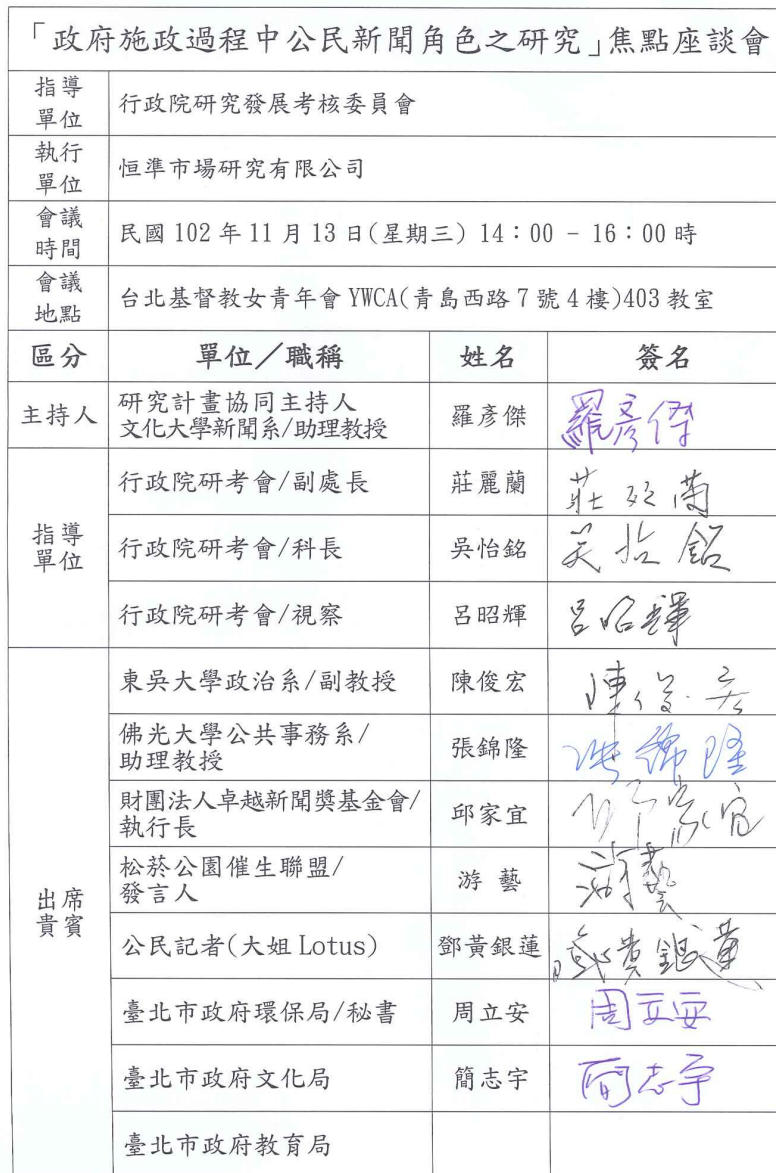 「政府施政過程中公民新聞角色之研究」焦點座談會
指導
單位
行政院研究發展考核委員會
執行
單位
恒準市場研究有限公司
會議
時間
民國 102 年 11 月 13 日(星期三) 14:00 - 16:00 時
會議
地點
台北基督教女青年會 YWCA(青島西路 7 號 4 樓)403 教室
區分 單位/職稱 姓名 簽名
主持人
研究計畫協同主持人
文化大學新聞系/助理教授
羅彥傑 羅彥傑
指導
單位
行政院研考會/副處長 莊麗蘭 莊麗蘭
行政院研考會/科長 吳怡銘 吳怡銘
行政院研考會/視察 呂昭輝 呂昭輝
出席
貴賓
東吳大學政治系/副教授 陳俊宏 陳俊宏
佛光大學公共事務系/
助理教授
張錦隆 張錦隆
財團法人卓越新聞獎基金會/
執行長
邱家宜 邱家宜
松菸公園催生聯盟/
發言人
游藝 游藝
公民記者(大姐 Lotus) 鄧黃銀蓮 鄧黃銀蓮
臺北市政府環保局/秘書 周立安 周立安
臺北市政府文化局 簡志宇 簡志宇
臺北市政府教育局